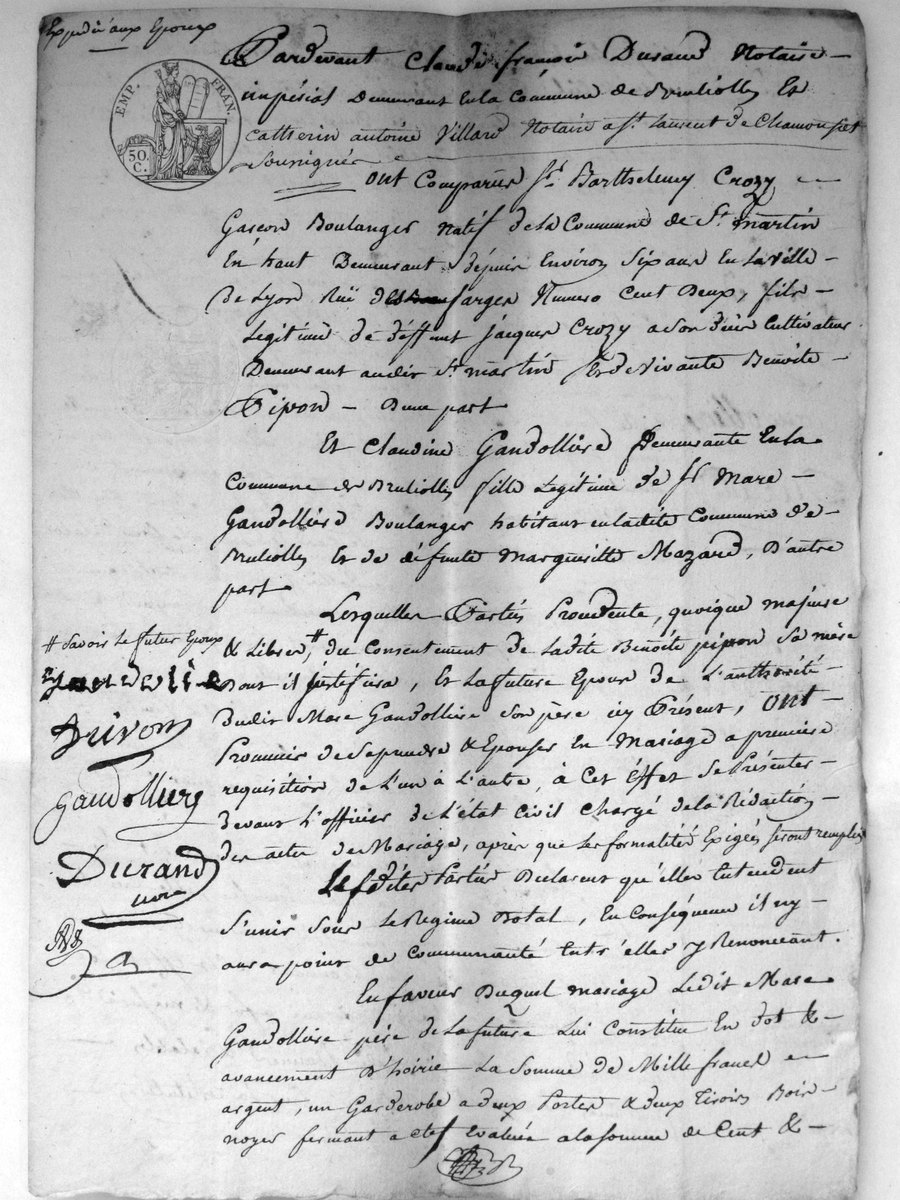 Expedié aux Epoux
EMP. FRAN.
50.
C.
Pardevant Claude françois Durand Notaire
impérial Demeurant En la Commune de Brulliolle Et
Catherin antoine Villard Notaire a St. Laurent de Chamousset
Soussignés
ont Comparus Sr. Barthelemy Crozy
Garcon Boulanger natif de la Commune de St. martin
En haut Demeurant depuis Environ Six ans En La Ville
De Lyon Ruë farges Numero Cent Deux, fils
Legitime de deffunt Jacques Crozy a Son Vivant Cultivateur
Demeurant audit St. martin Et de Vivante Benoite
Pipon D'une part
Et Claudine Gandolliere Demeurante En La
Commune de Brulliolle fille Legitime de Sr Marc
Gandolliere Boulanger habitant en ladite Commune de
Brulliolle Et de défunte Marguerite Mazard, D'autre
part
Lesquelles Parties Procedente, quoique majeure
& Libres, # du Consentement de Ladite Benoite pipon Sa mère
Dont il justifiera, Et La future Epouse De L'authorité
Dudit Marc Gandolliere Son père icy Présent, ont
Promis de Se prendre & Epouser En Mariage a première
requisition de L'un à L'autre, à Cet Effet de Se Présenter
devant L'officier de L'état Civil Chargé de la Rédaction
des actes de Mariage, après que Les formalités Exigées Seront remplies
Lesdites Parties Declarent qu'elles Entendent
S'unir Sous Le Regime Dotal, En Conséquence il n'y
aura point de Communauté Entr'elles y Renonceant.
En faveur Duquel mariage Ledit Marc
Gandolliere père de La future Lui Constitue En dot &
avancement D'hoirie La Somme de Mille francs En
argent, un Garderobe a deux Portes & deux Tiroirs Bois
noyer fermant a clef Evaluée a la Somme de Cent &
# Savoir Le futur Epoux
Drivon
gandolliere
Durand
nore